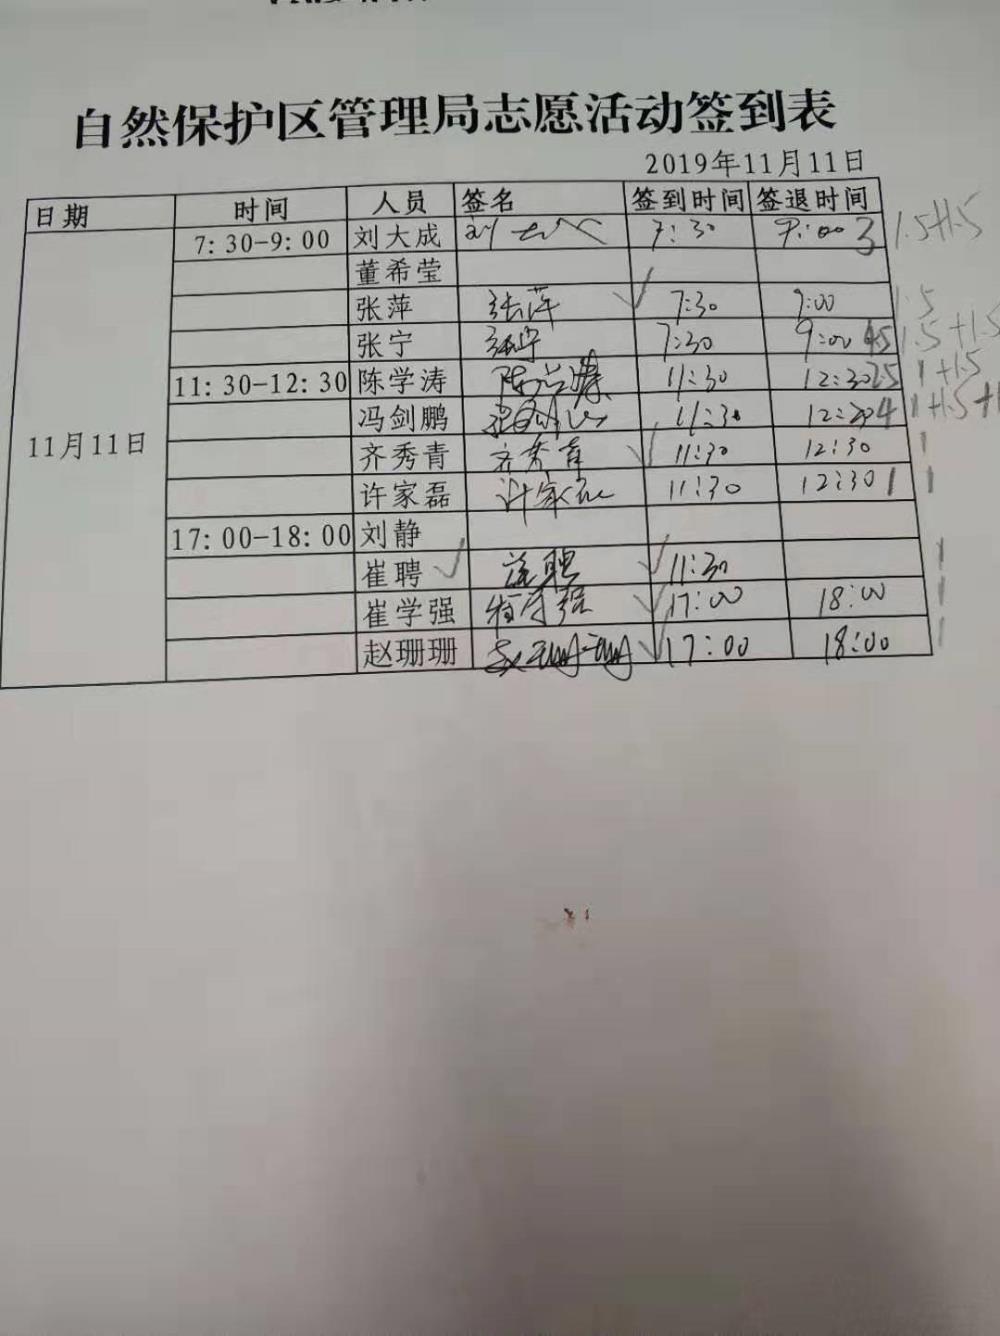 自然保护区管理局志愿活动签到表
2019年11月11日
日期 时间 人员 签名 签到时间 签退时间
7:30-9:00 刘大成 刘大成 7:30 9:00 3 1.5+1.5
董希莹
张萍 张萍 7:30 9:00 1.5
张宁 张宁 7:30 9:00 4.5 1.5+1.5
11:30-12:30 陈学涛 陈学涛 11:30 12:30 2.5 1+1.5
11月11日 冯剑鹏 11:30 12:30 4 1+1.5+1
齐秀青 齐秀青 11:30 12:30 1
许家磊 许家磊 11:30 12:30 1 1
17:00-18:00 刘静
崔聘 崔聘 11:30 1
崔学强 崔学强 17:00 18:00 1
赵珊珊 赵珊珊 17:00 18:00 1